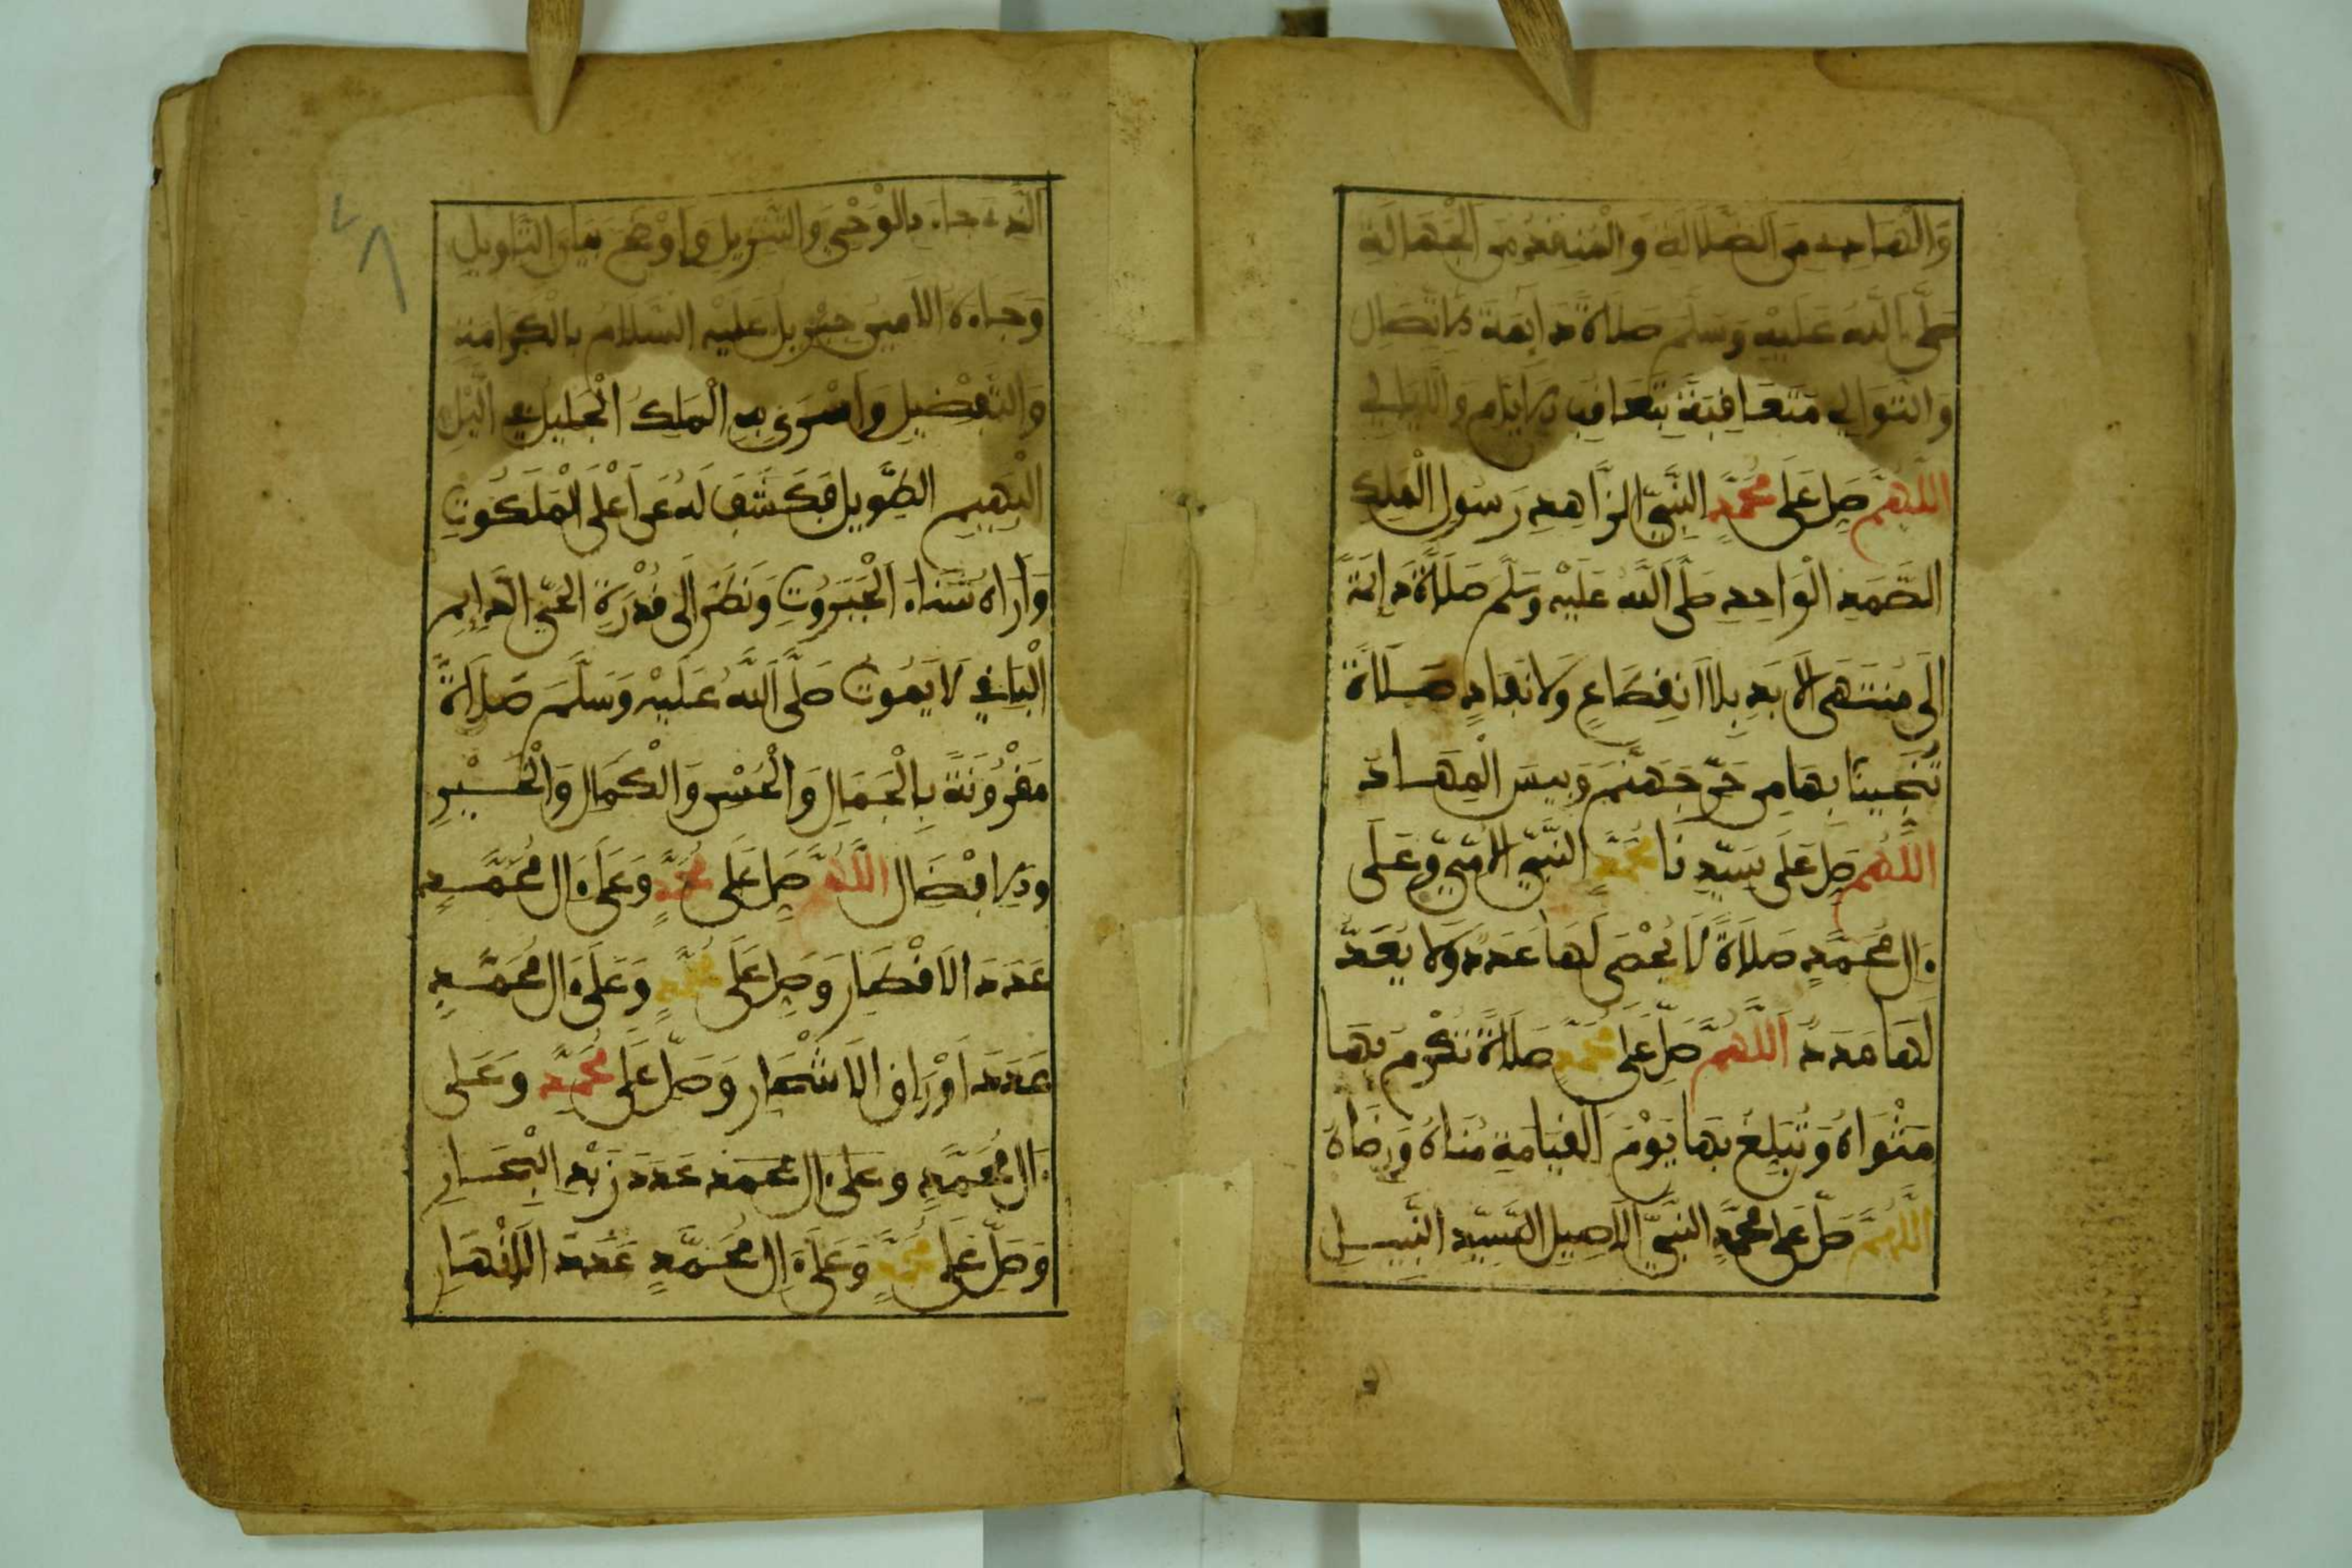 وَالْهَادِي مِنَ الضَّلَالَةِ وَالْمُنْقِذِ مِنَ الْجَهَالَةِ
صَلَّى اللَّهُ عَلَيْهِ وَسَلَّمَ صَلَاةً دَائِمَةَ الِاتِّصَالِ
وَالتَّوَالِي مُتَعَاقِبَةً بِتَعَاقُبِ الْأَيَّامِ وَاللَّيَالِي
اللَّهُمَّ صَلِّ عَلَى مُحَمَّدٍ النَّبِيِّ الزَّاهِدِ رَسُولِ الْمَلِكِ
الصَّمَدِ الْوَاحِدِ صَلَّى اللَّهُ عَلَيْهِ وَسَلَّمَ صَلَاةً دَائِمَةً
إِلَى مُنْتَهَى الْأَبَدِ بِلَا انْقِطَاعٍ وَلَا نَفَادٍ صَلَاةً
تُنْجِينَا بِهَا مِنْ حَرِّ جَهَنَّمَ وَبِيسَ الْمِهَادُ
اللَّهُمَّ صَلِّ عَلَى سَيِّدِنَا مُحَمَّدٍ النَّبِيِّ الْأُمِّيِّ وَعَلَى
ءَالِ مُحَمَّدٍ صَلَاةً لَا يُحْصَى لَهَا عَدَدٌ وَلَا يُعَدُّ
لَهَا مَدَدٌ اللَّهُمَّ صَلِّ عَلَى مُحَمَّدٍ صَلَاةً تُكْرِمُ بِهَا
مَثْوَاهُ وَتُبَلِّغُ بِهَا يَوْمَ الْقِيَامَةِ مُنَاهُ وَرِضَاهُ
اللَّهُمَّ صَلِّ عَلَى مُحَمَّدٍ النَّبِيِّ الْأَصِيلِ السَّيِّدِ النَّبِيلِ
الَّذِي جَاءَ بِالْوَحْيِ وَالتَّنْزِيلِ وَأَوْضَحَ بَيَانَ التَّأْوِيلِ
وَجَاءَهُ الْأَمِينُ جِبْرِيلُ عَلَيْهِ السَّلَامُ بِالْكَرَامَةِ
وَالتَّفْضِيلِ وَأَسْرَى بِهِ الْمَلِكُ الْجَلِيلُ فِي اللَّيْلِ
الْبَهِيمِ الطَّوِيلِ فَكَشَفَ لَهُ عَنْ أَعْلَى الْمَلَكُوتِ
وَأَرَاهُ سَنَاءَ الْجَبَرُوتِ وَنَظَرَ إِلَى قُدْرَةِ الْحَيِّ الدَّائِمِ
الْبَاقِي لَا يَمُوتُ صَلَّى اللَّهُ عَلَيْهِ وَسَلَّمَ صَلَاةً
مَقْرُونَةً بِالْجَمَالِ وَالْحُسْنِ وَالْكَمَالِ وَالْخَيْرِ
وَالْإِفْضَالِ اللَّهُمَّ صَلِّ عَلَى مُحَمَّدٍ وَعَلَى ءَالِ مُحَمَّدٍ
عَدَدَ الْأَقْطَارِ وَصَلِّ عَلَى مُحَمَّدٍ وَعَلَى ءَالِ مُحَمَّدٍ
عَدَدَ أَوْرَاقِ الْأَشْجَارِ وَصَلِّ عَلَى مُحَمَّدٍ وَعَلَى
ءَالِ مُحَمَّدٍ وَعَلَى ءَالِ مُحَمَّدٍ عَدَدَ زَبَدِ الْبِحَارِ
وَصَلِّ عَلَى مُحَمَّدٍ وَعَلَى ءَالِ مُحَمَّدٍ عَدَدَ الْأَنْهَارِ